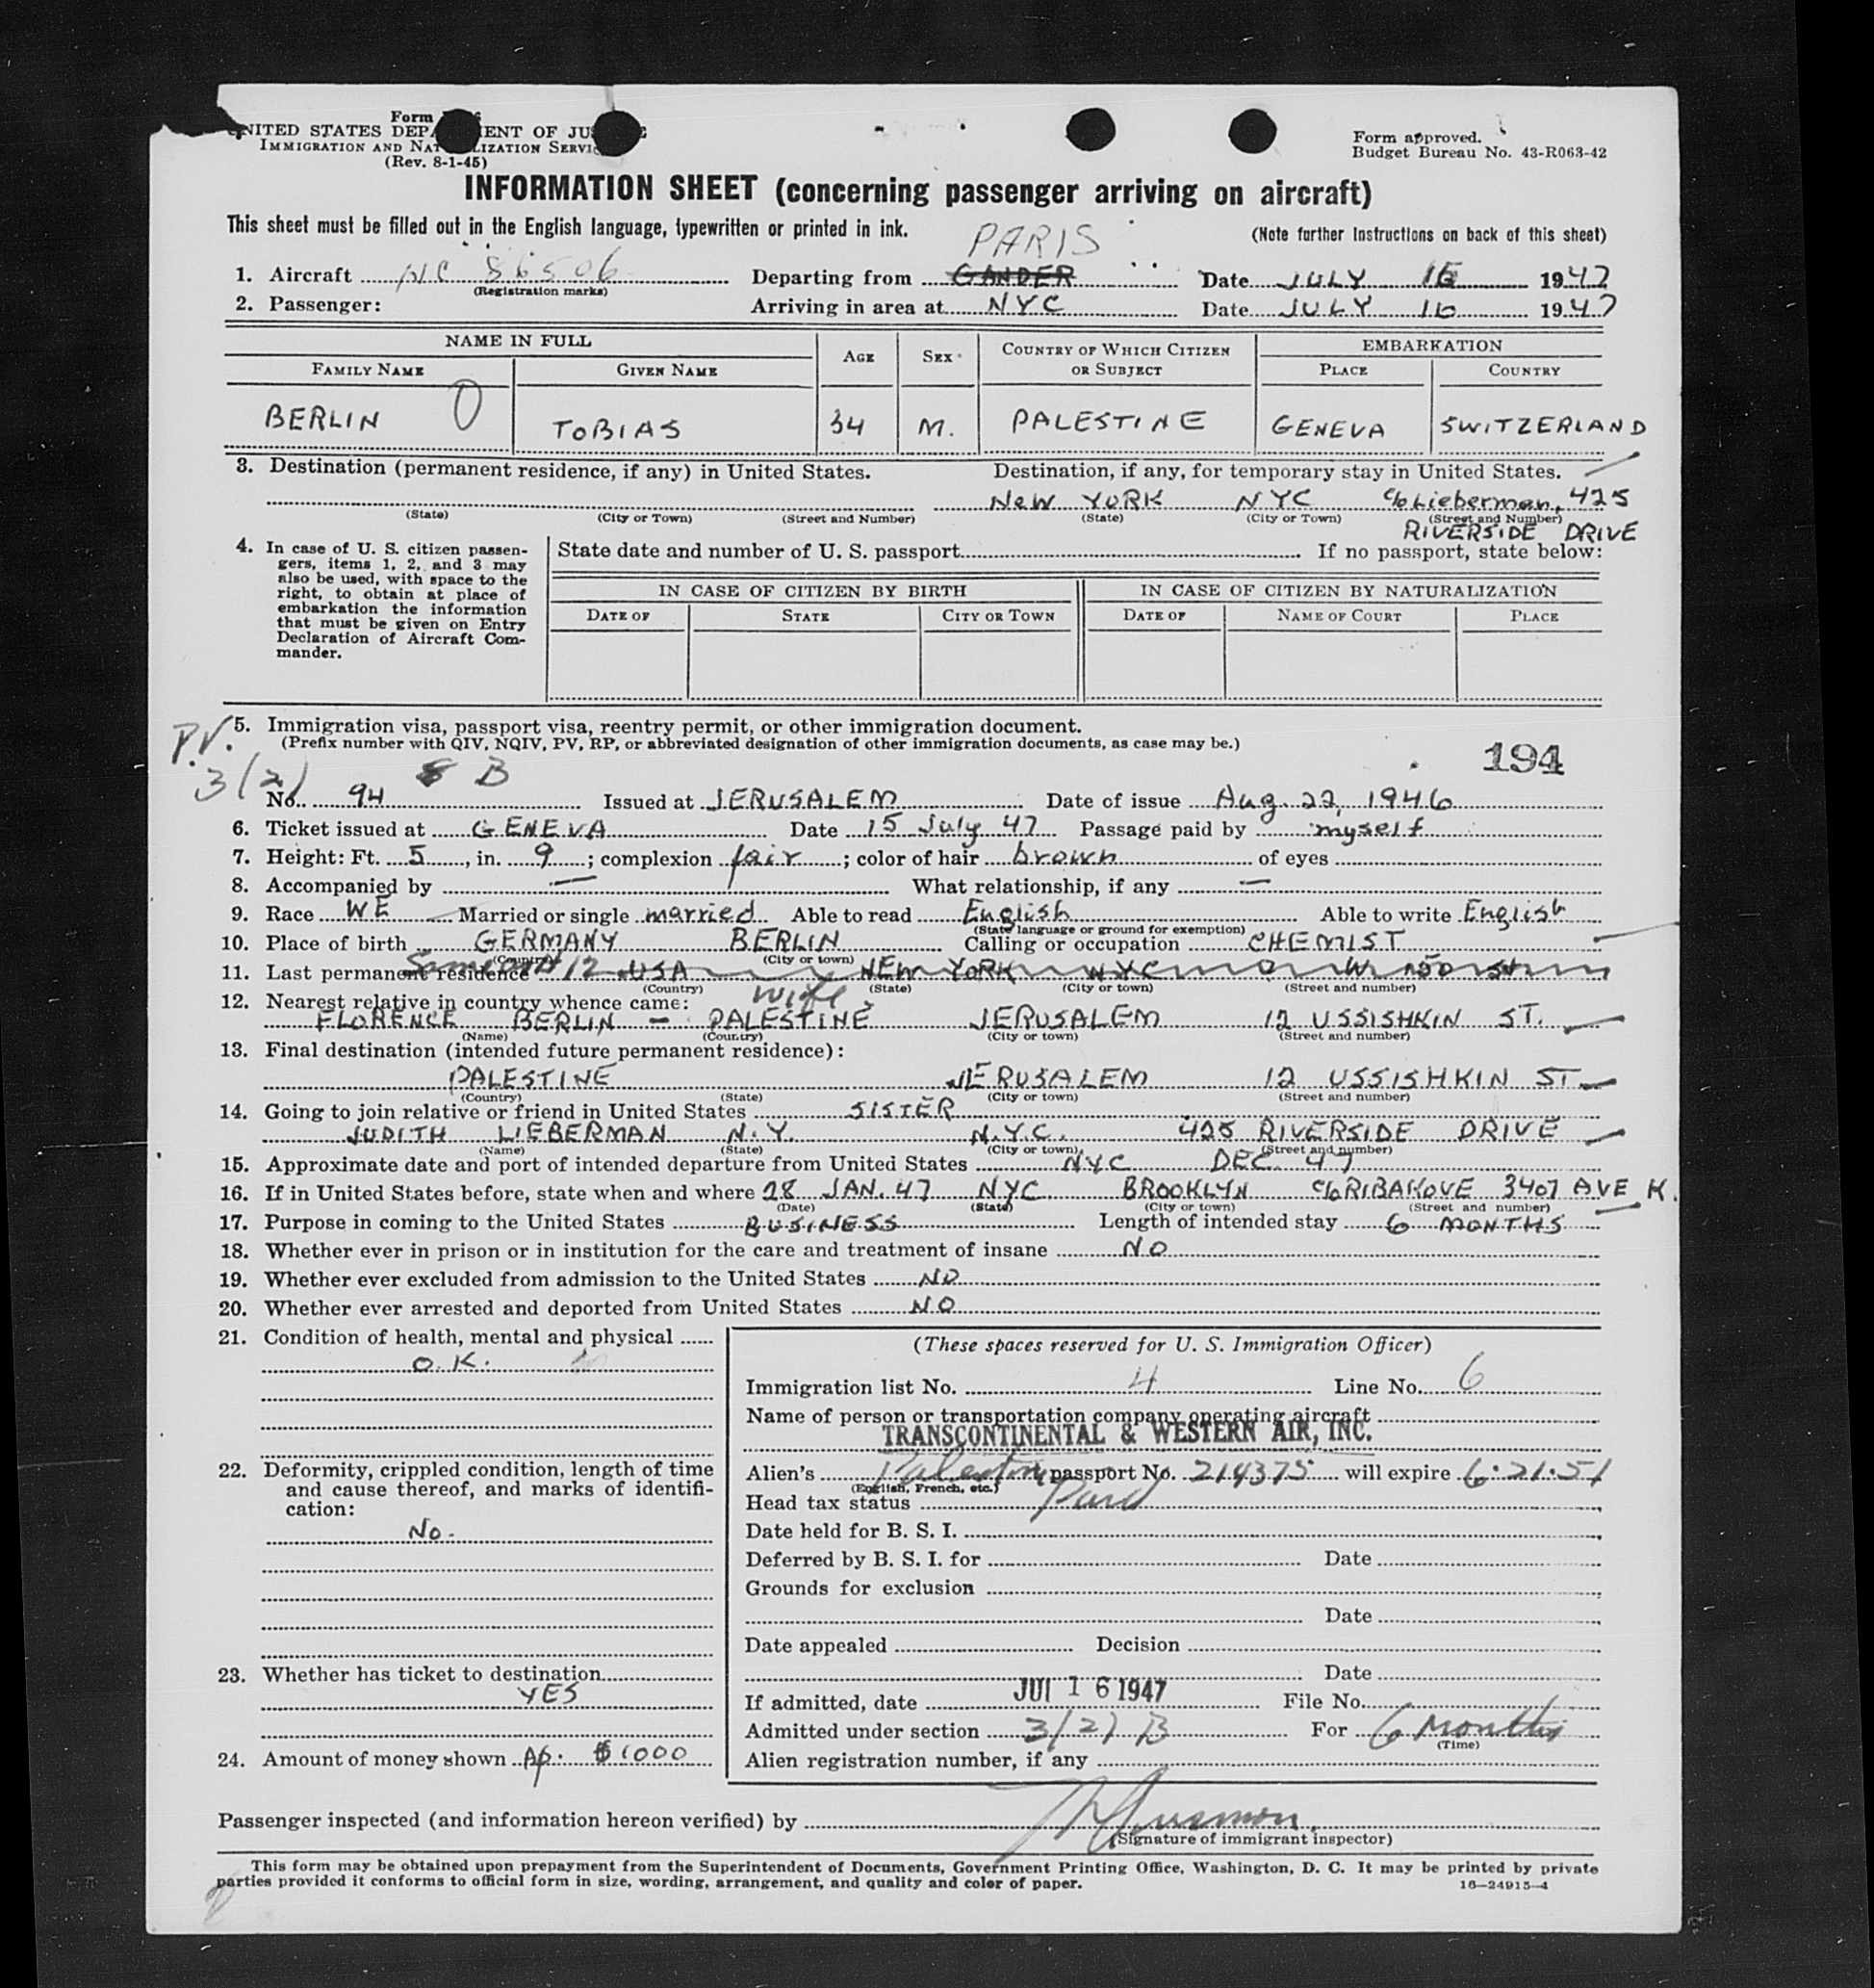 Form
UNITED STATES DEPARTMENT OF JUSTICE
IMMIGRATION AND NATURALIZATION SERVICE
(Rev. 8-1-45)
Form approved.
Budget Bureau No. 43-R063-42
INFORMATION SHEET (concerning passenger arriving on aircraft)
This sheet must be filled out in the English language, typewritten or printed in ink.
(Note further instructions on back of this sheet)
PARIS
1. Aircraft NC 86506 Departing from GANDER Date JULY 16 1947
(Registration marks)
2. Passenger: Arriving in area at NYC Date JULY 16 1947
NAME IN FULL AGE SEX COUNTRY OF WHICH CITIZEN OR SUBJECT EMBARKATION
FAMILY NAME GIVEN NAME PLACE COUNTRY
BERLIN TOBIAS 34 M. PALESTINE GENEVA SWITZERLAND
3. Destination (permanent residence, if any) in United States. Destination, if any, for temporary stay in United States.
NEW YORK NYC c/o Lieberman, 425
(State) (City or Town) (Street and Number) (State) (City or Town) (Street and Number)
RIVERSIDE DRIVE
4. In case of U. S. citizen passengers, items 1, 2, and 3 may also be used, with space to the right, to obtain at place of embarkation the information that must be given on Entry Declaration of Aircraft Commander.
State date and number of U. S. passport If no passport, state below:
IN CASE OF CITIZEN BY BIRTH IN CASE OF CITIZEN BY NATURALIZATION
DATE OF STATE CITY OR TOWN DATE OF NAME OF COURT PLACE
5. Immigration visa, passport visa, reentry permit, or other immigration document.
(Prefix number with QIV, NQIV, PV, RP, or abbreviated designation of other immigration documents, as case may be.)
P.V.
194
3(2) B
No. 94 Issued at JERUSALEM Date of issue Aug. 22, 1946
6. Ticket issued at GENEVA Date 15 July 47 Passage paid by myself
7. Height: Ft. 5, in. 9; complexion fair; color of hair brown of eyes
8. Accompanied by — What relationship, if any —
9. Race WE Married or single married Able to read English Able to write English
(State language or ground for exemption)
10. Place of birth GERMANY BERLIN Calling or occupation CHEMIST
(Country) (City or town)
11. Last permanent residence Same as 12 USA NEW YORK NYC
(Country) (State) (City or town) (Street and number)
12. Nearest relative in country whence came: wife
FLORENCE BERLIN - PALESTINE JERUSALEM 12 USSISHKIN ST.
(Name) (Country) (City or town) (Street and number)
13. Final destination (intended future permanent residence):
PALESTINE JERUSALEM 12 USSISHKIN ST.
(Country) (State) (City or town) (Street and number)
14. Going to join relative or friend in United States SISTER
JUDITH LIEBERMAN N.Y. N.Y.C. 425 RIVERSIDE DRIVE
(Name) (State) (City or town) (Street and number)
15. Approximate date and port of intended departure from United States NYC DEC. 47
16. If in United States before, state when and where 28 JAN. 47 NYC BROOKLYN c/o RIBAKOVE 3407 AVE K.
(Date) (State) (City or town) (Street and number)
17. Purpose in coming to the United States BUSINESS Length of intended stay 6 MONTHS
18. Whether ever in prison or in institution for the care and treatment of insane NO
19. Whether ever excluded from admission to the United States NO
20. Whether ever arrested and deported from United States NO
21. Condition of health, mental and physical
O.K.
22. Deformity, crippled condition, length of time and cause thereof, and marks of identification:
No.
23. Whether has ticket to destination
YES
24. Amount of money shown Ap. $1000
(These spaces reserved for U. S. Immigration Officer)
Immigration list No. 4 Line No. 6
Name of person or transportation company operating aircraft
TRANSCONTINENTAL & WESTERN AIR, INC.
Alien's Palestine passport No. 214375 will expire 6.21.51
(English, French, etc.)
Head tax status Paid
Date held for B. S. I.
Deferred by B. S. I. for Date
Grounds for exclusion
Date
Date appealed Decision
Date
If admitted, date JUL 16 1947 File No.
Admitted under section 3(2) B For 6 Months
(Time)
Alien registration number, if any
Passenger inspected (and information hereon verified) by
(Signature of immigrant inspector)
This form may be obtained upon prepayment from the Superintendent of Documents, Government Printing Office, Washington, D. C. It may be printed by private
parties provided it conforms to official form in size, wording, arrangement, and quality and color of paper.
16—24915-4